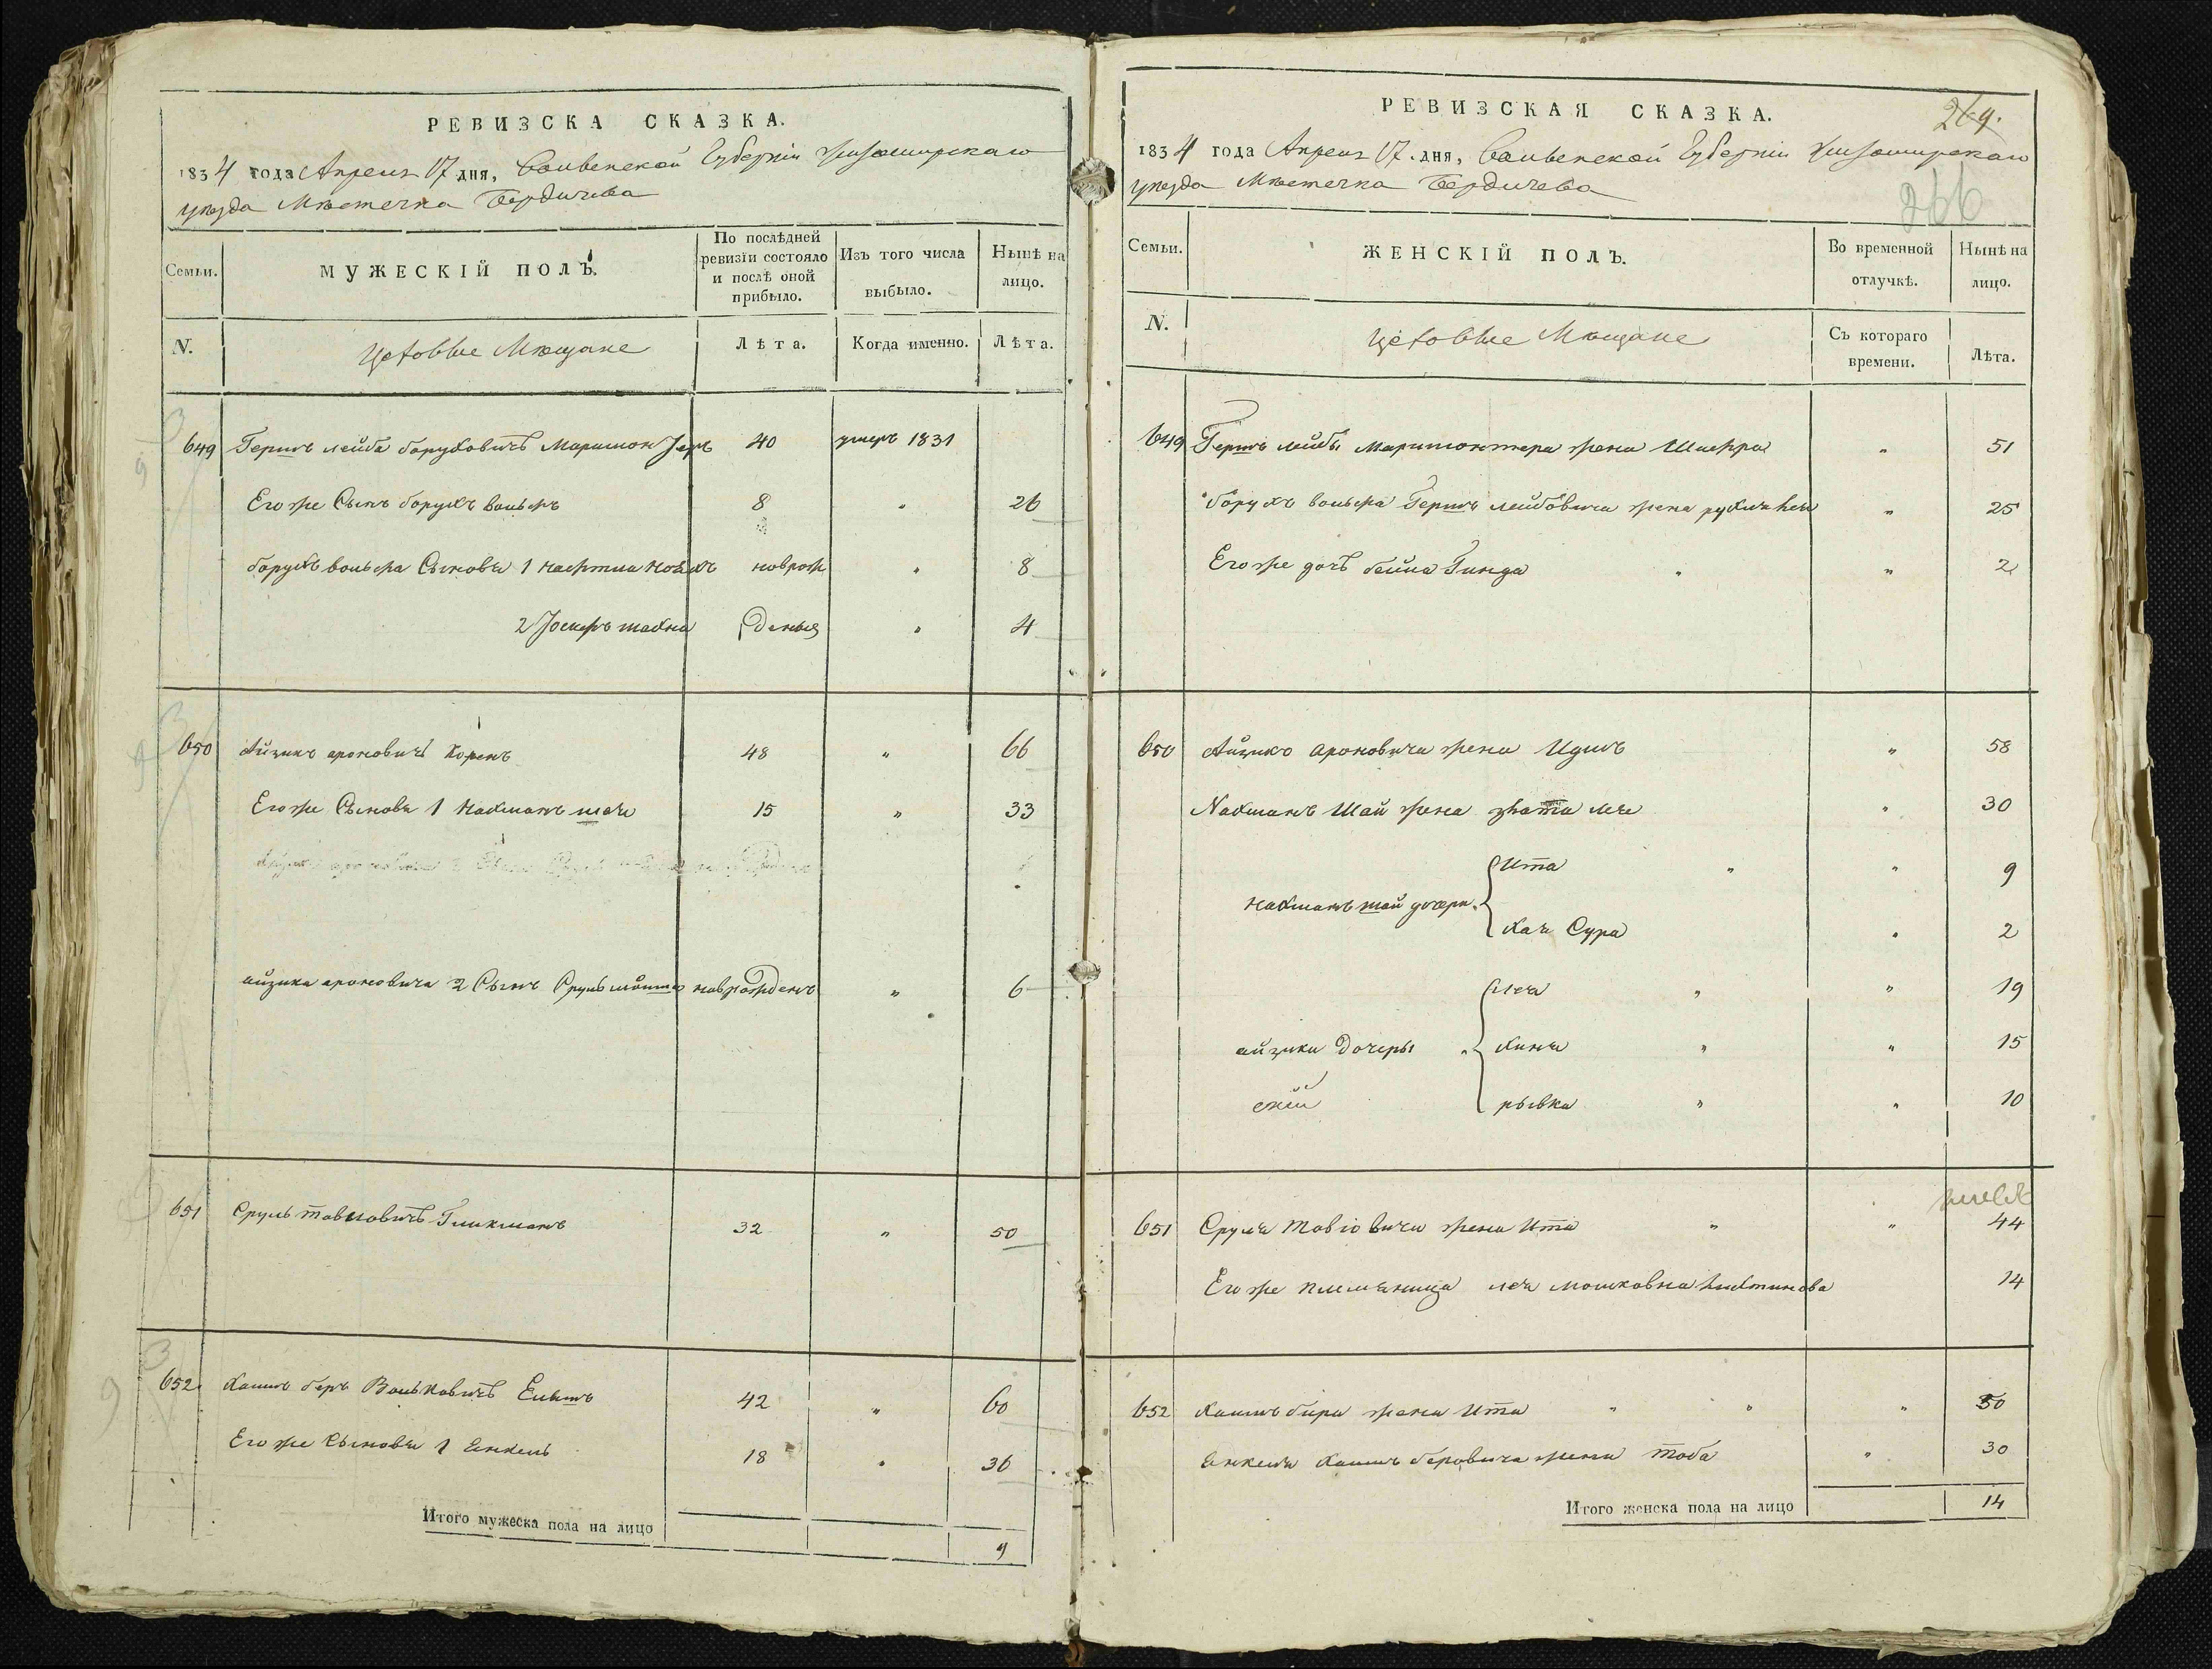 РЕВИЗСКА СКАЗКА.
1834 года Апреля 17 дня, Волынской Губерніи Житомирскаго
уѣзда Мѣстечка Бердичева
Семьи.
МУЖЕСКІЙ ПОЛЪ.
По послѣдней ревизіи состояло и послѣ оной прибыло.
Изъ того числа выбыло.
Нынѣ на лицо.
N.
Цеховые Мещане
Лѣта.
Когда именно.
Лѣта.
649 Гершъ лейба боруховичъ 40 умеръ 1831
Его же Сынъ борухъ вольфъ 8 " 26
борухъ вольфа Сыновья 1 новрож " 8
2 Іосифъ деныя " 4
650 Айзикъ ароновичъ Коренъ 48 " 66
Его же Сыновья 1 Нахманъ шая 15 " 33
айзика ароновича 2 Сынъ Сруль новрожденъ " 6
651 Сруль товіовичъ Гликманъ 32 " 50
652 Каимъ беръ Вольковичъ 42 " 60
Его же Сыновья 1 Янкель 18 " 36
Итого мужеска пола на лицо 9
РЕВИЗСКАЯ СКАЗКА.
269.
266
1834 года Апреля 17 дня, Волынской Губерніи Житомирскаго
уѣзда Мѣстечка Бердичева
Семьи.
ЖЕНСКІЙ ПОЛЪ.
Во временной отлучкѣ.
Нынѣ на лицо.
N.
Цеховые Мещане
Съ котораго времени.
Лѣта.
649 Гершъ лейбы жена Шифра " 51
борухъ вольфа Гершъ лейбовича жена " 25
Его же дочь бейла Гинда " " 2
650 Айзикъ ароновича жена Идись " 58
Нахманъ Шаи жена злата лея " 30
Ита " " 9
нахманъ шаи дочери
Хая Сура " 2
лея " " 19
айзика дочеры " Хиня " " 15
рывка " " 10
651 Сруля товіовича жена Ита " " 44
Его же племяница лея мошковна 14
652 Каимъ бера жена Ита " " " 50
Янкеля Каимъ беровича жена тоба " 30
Итого женска пола на лицо 14